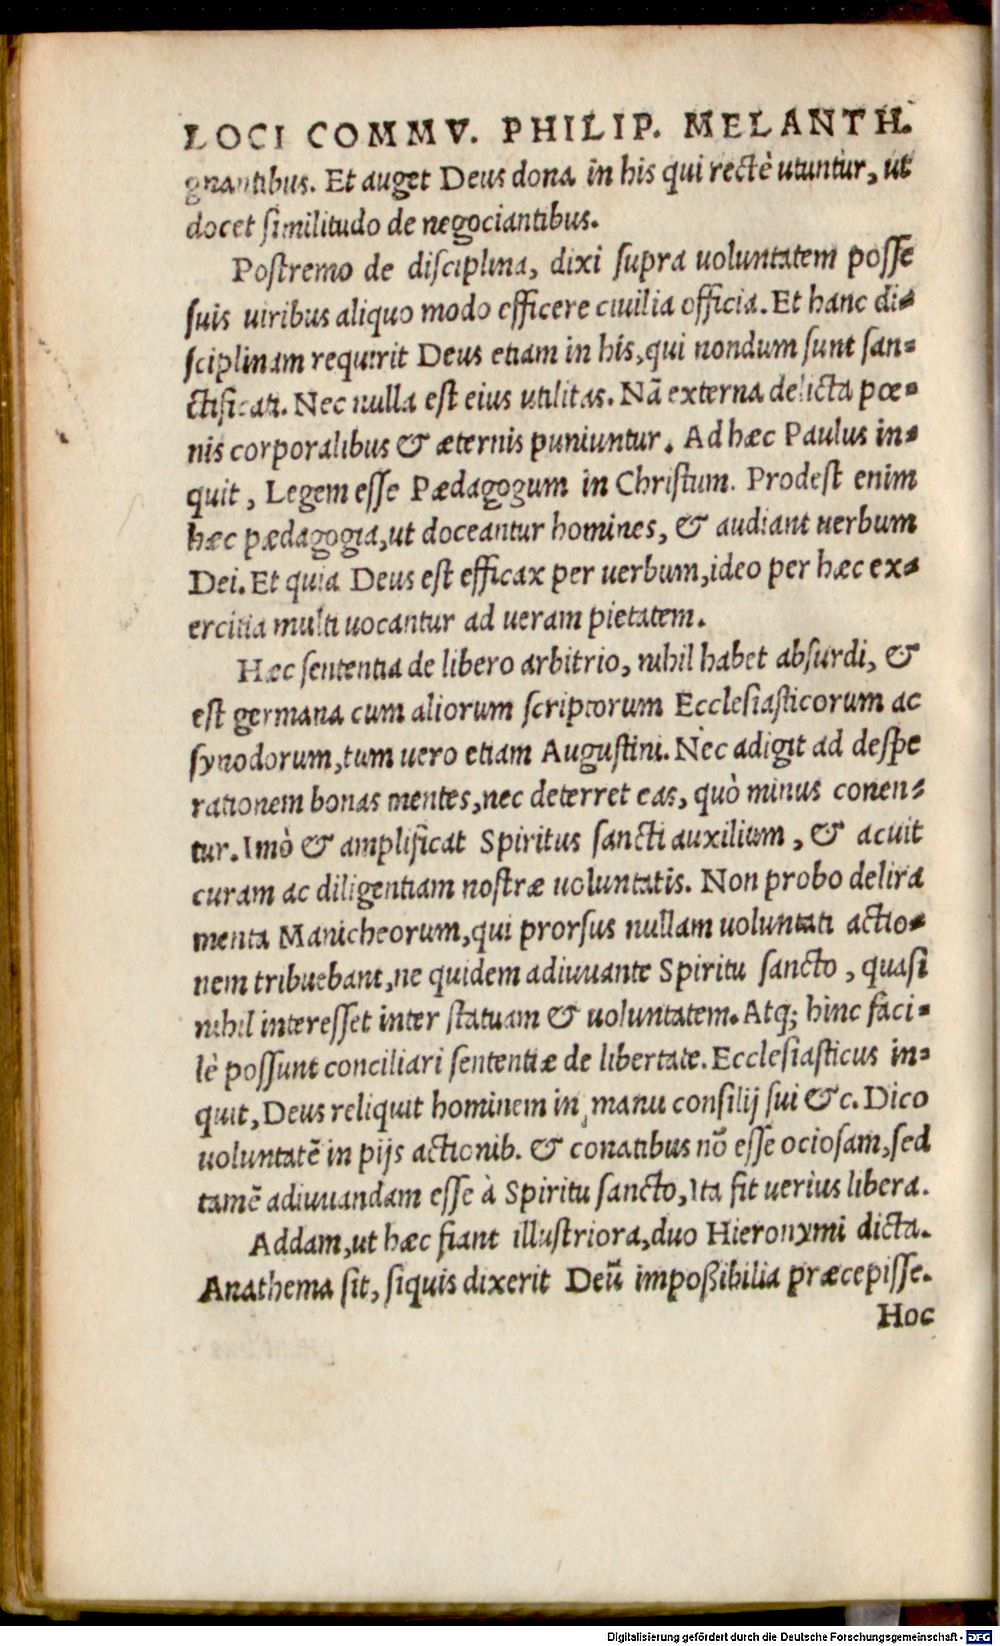 LOCI COMMV. PHILIP. MELANTH.
gnantibus. Et auget Deus dona in his qui rectè utuntur, ut
docet similitudo de negociantibus.
Postremo de disciplina, dixi supra uoluntatem posse
suis uiribus aliquo modo efficere ciuilia officia. Et hanc di-
sciplinam requirit Deus etiam in his, qui nondum sunt san-
ctificati. Nec nulla est eius utilitas. Nã externa delicta pœ-
nis corporalibus & æternis puniuntur. Ad hæc Paulus in-
quit, Legem esse Pædagogum in Christum. Prodest enim
hæc pædagogia, ut doceantur homines, & audiant uerbum
Dei. Et quia Deus est efficax per uerbum, ideo per hæc ex-
ercitia multi uocantur ad ueram pietatem.
Hæc sententia de libero arbitrio, nihil habet absurdi, &
est germana cum aliorum scriptorum Ecclesiasticorum ac
synodorum, tum uero etiam Augustini. Nec adigit ad despe
rationem bonas mentes, nec deterret eas, quò minus conen-
tur. Imò & amplificat Spiritus sancti auxilium, & acuit
curam ac diligentiam nostræ uoluntatis. Non probo delira
menta Manicheorum, qui prorsus nullam uoluntati actio-
nem tribuebant, ne quidem adiuuante Spiritu sancto, quasi
nihil interesset inter statuam & uoluntatem. Atq; hinc faci-
lè possunt conciliari sententiæ de libertate. Ecclesiasticus in-
quit, Deus reliquit hominem in manu consilij sui &c. Dico
uoluntatẽ in pijs actionib. & conatibus nõ esse ociosam, sed
tamẽ adiuuandam esse à Spiritu sancto, Ita fit uerius libera.
Addam, ut hæc fiant illustriora, duo Hieronymi dicta.
Anathema sit, siquis dixerit Deũ impoßibilia præcepisse.
Hoc
Digitalisierung gefördert durch die Deutsche Forschungsgemeinschaft - DFG